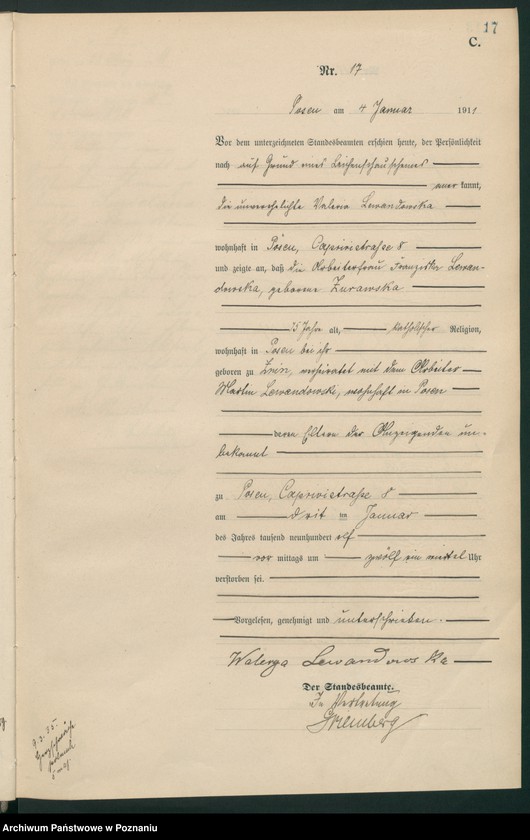 17
C.
Nr. 17
Posen am 4 Januar 1911
Vor dem unterzeichneten Standesbeamten erschien heute, der Persönlichkeit
nach auf Grund eines Leichenschauscheines
aner kannt,
die unverehelichte Valeria Lewandowska
wohnhaft in Posen, Caprivistraße 8
und zeigte an, daß die Arbeiterfrau Franziska Lewan-
dowska, geborene Zurawska
Jahre alt, katholischer Religion,
wohnhaft in Posen bei ihr
geboren zu Znin, verheiratet mit dem Arbeiter
Martin Lewandowski, wohnhaft in Posen
deren Eltern der Anzeigenden un-
bekannt
zu Posen, Caprivistraße 8
am drit im Januar
des Jahres tausend neunhundert elf
vor mittags um zwölf ein viertel Uhr
verstorben sei.
Vorgelesen, genehmigt und unterschrieben.
Walerya Lewandowska
Der Standesbeamte.
In Vertretung
9. 2. 35.
Archiwum Państwowe w Poznaniu